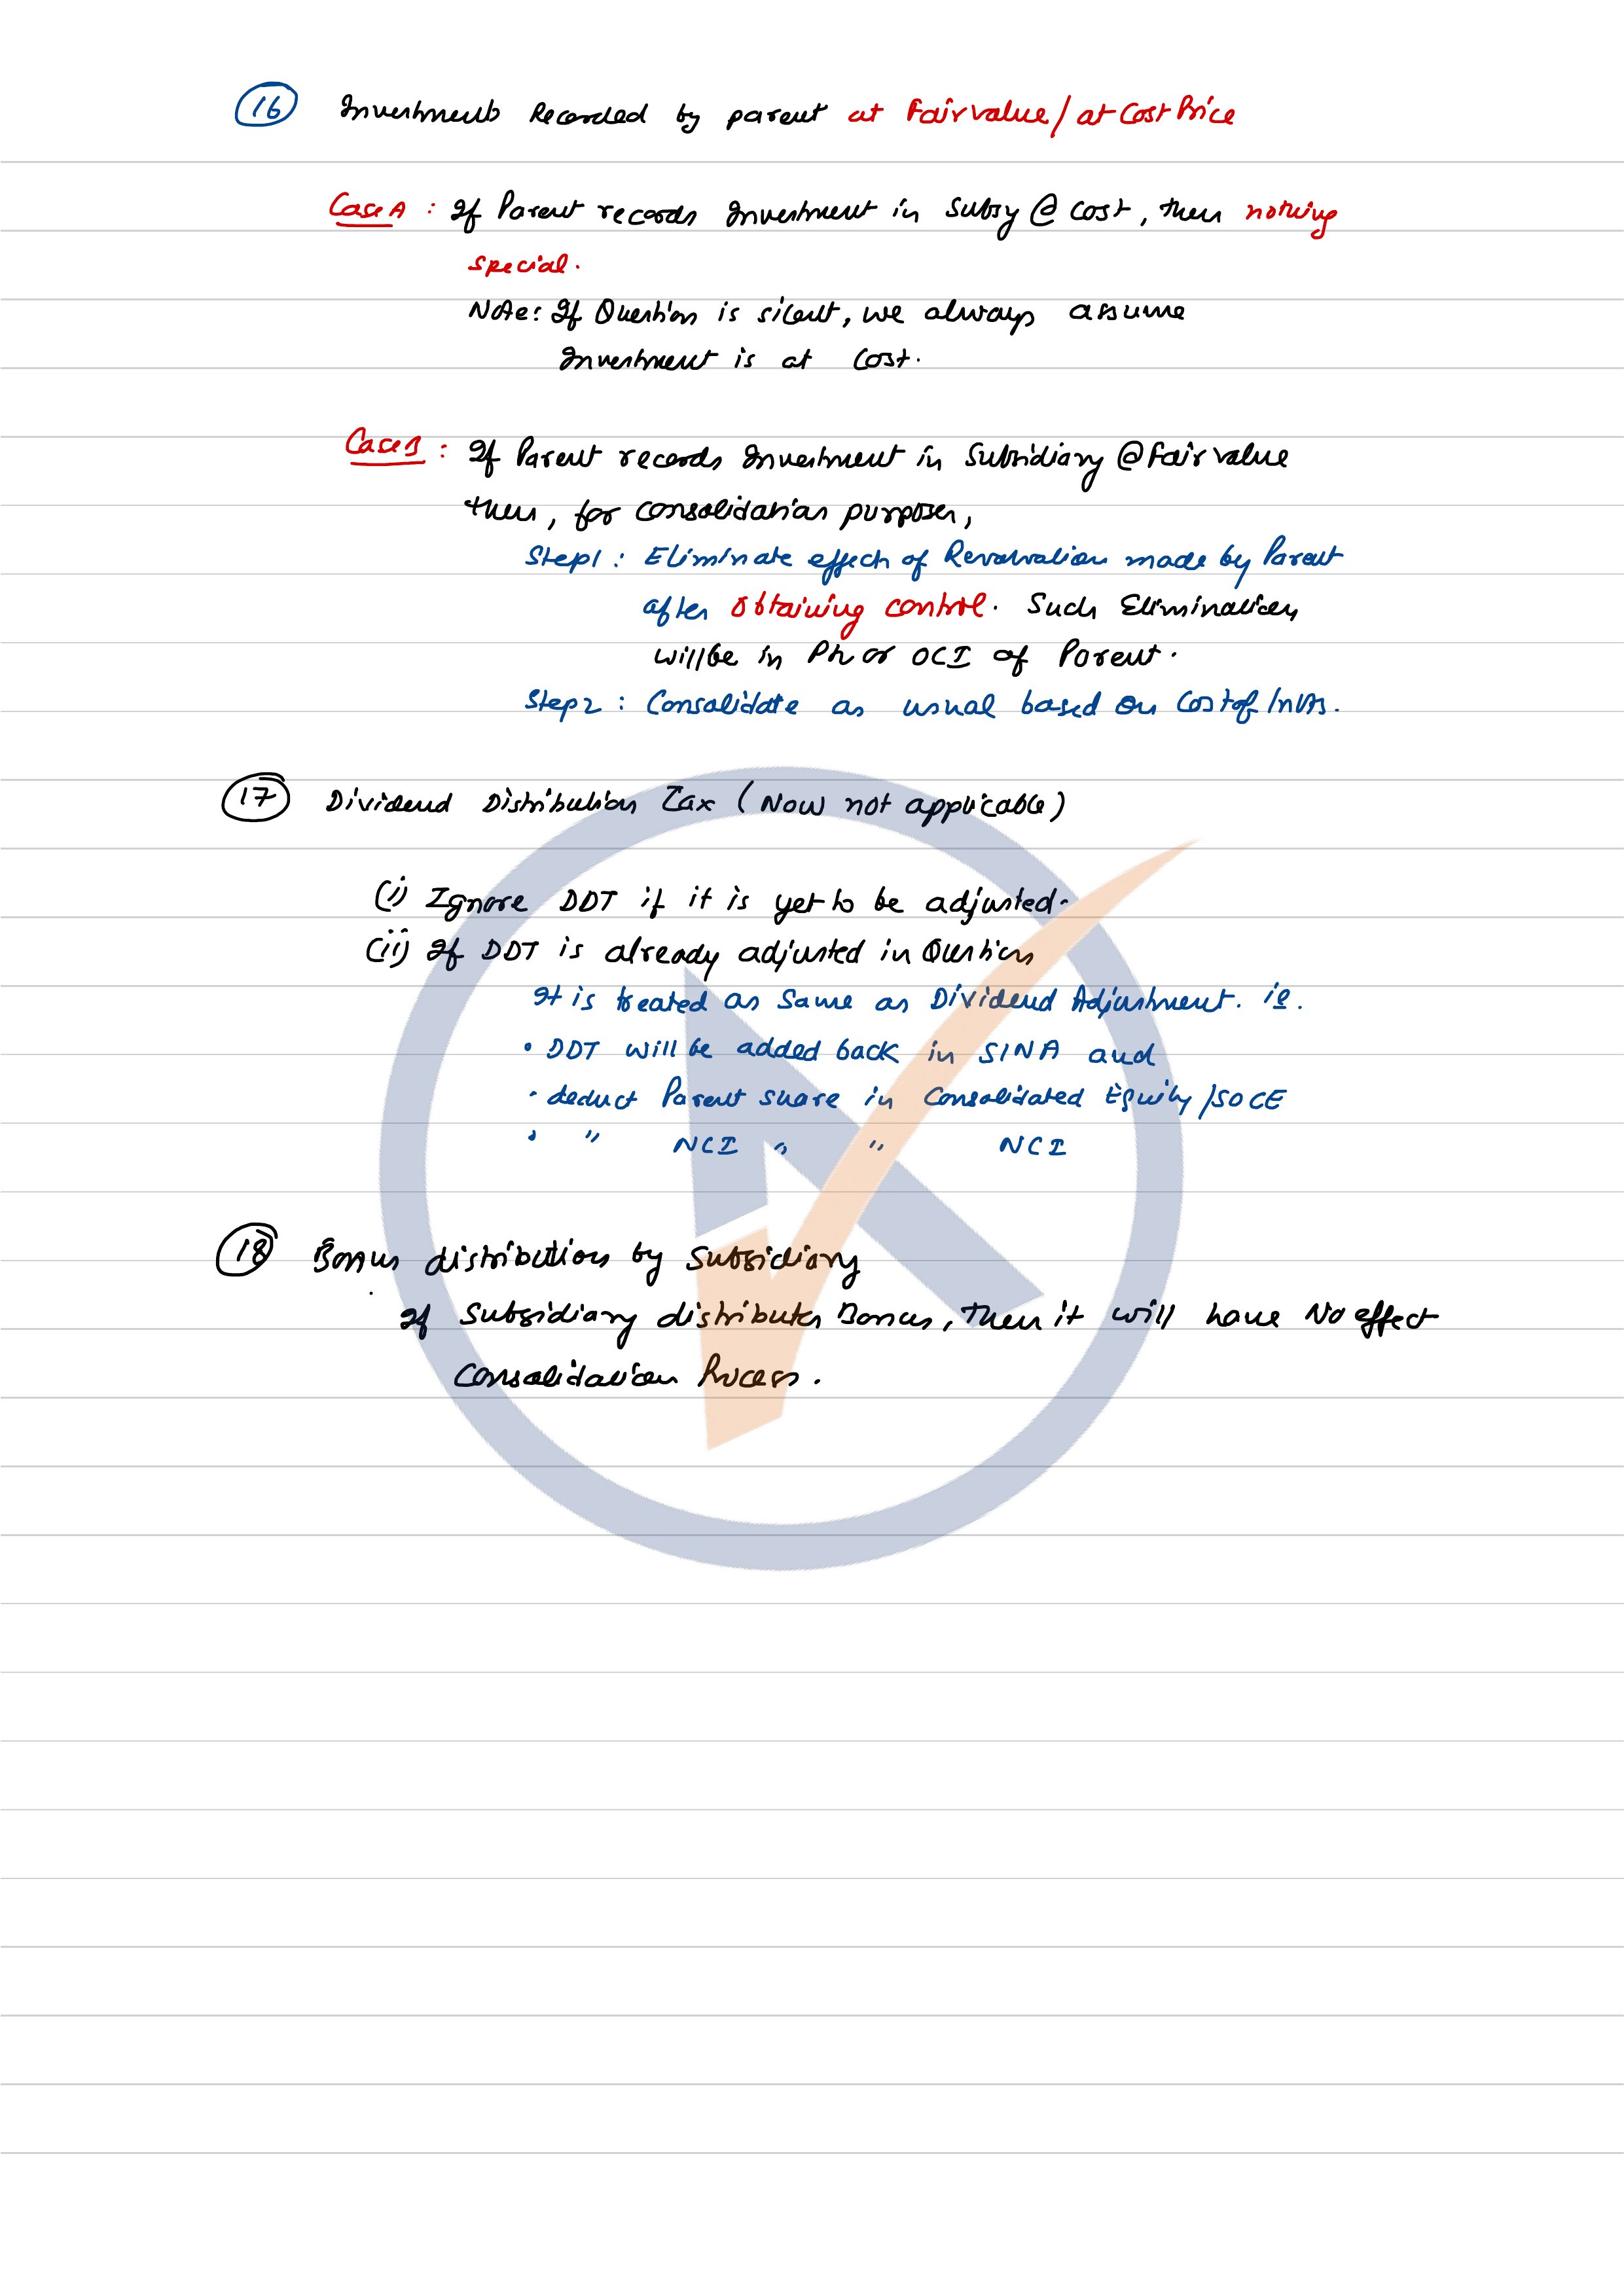 16 Investments Recorded by parent at Fair value / at Cost Price
Case A : If Parent records Investment in Subsy @ cost, then nothing
special.
Note: If Question is silent, we always assume
Investment is at cost.
Case B : If Parent records Investment in Subsidiary @ Fair value
then, for consolidation purposes,
Step 1 : Eliminate effect of Revaluation made by Parent
after obtaining control. Such Elimination
will be in P/L or OCI of Parent.
Step 2 : Consolidate as usual based on Cost of Invts.
17 Dividend Distribution Tax (Now not applicable)
(i) Ignore DDT if it is yet to be adjusted.
(ii) If DDT is already adjusted in Question
It is treated as same as Dividend Adjustment. ie.
• DDT will be added back in SINA and
• deduct Parent share in Consolidated Equity / SOCE
• " NCI " " NCI
18 Bonus distribution by Subsidiary
If Subsidiary distributes Bonus, then it will have No effect
Consolidation Process.